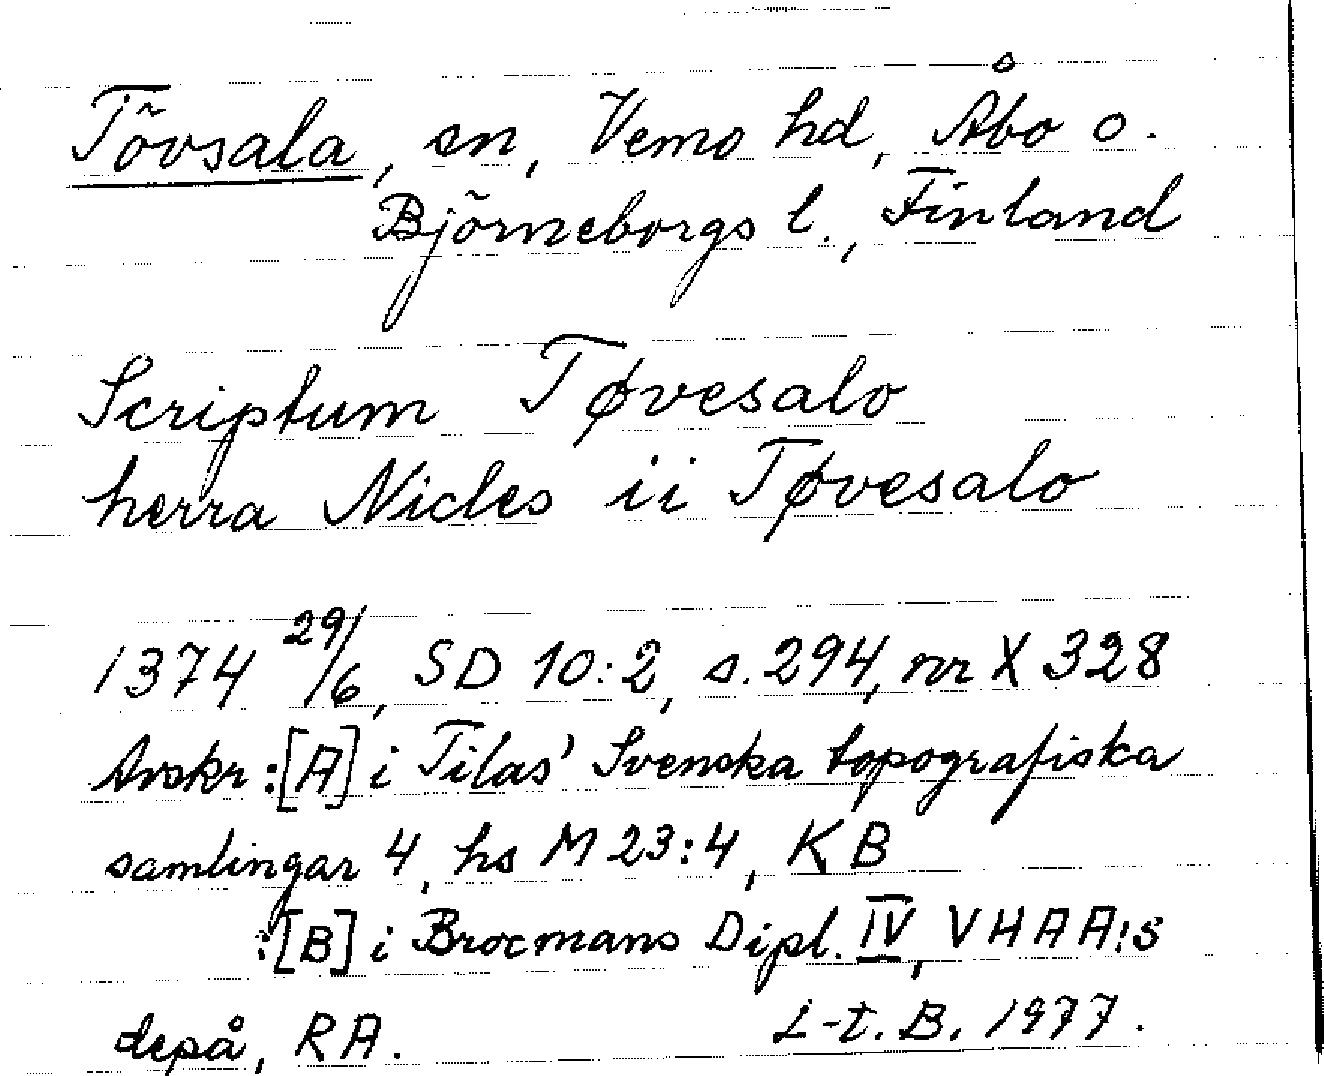 Tövsala, sn, Vemo hd, Åbo o.
Björneborgs l., Finland
Scriptum Tøvesalo
herra Nicles ii Tøvesalo
1374 29/6, SD 10:2, s. 294, nr X 328
Avskr :[A] i Tilas' Svenska topografiska
samlingar 4, hs M 23:4, KB
:[B] i Brocmans Dipl. IV, VHAA:s
depå, RA. L-t. B. 1977.